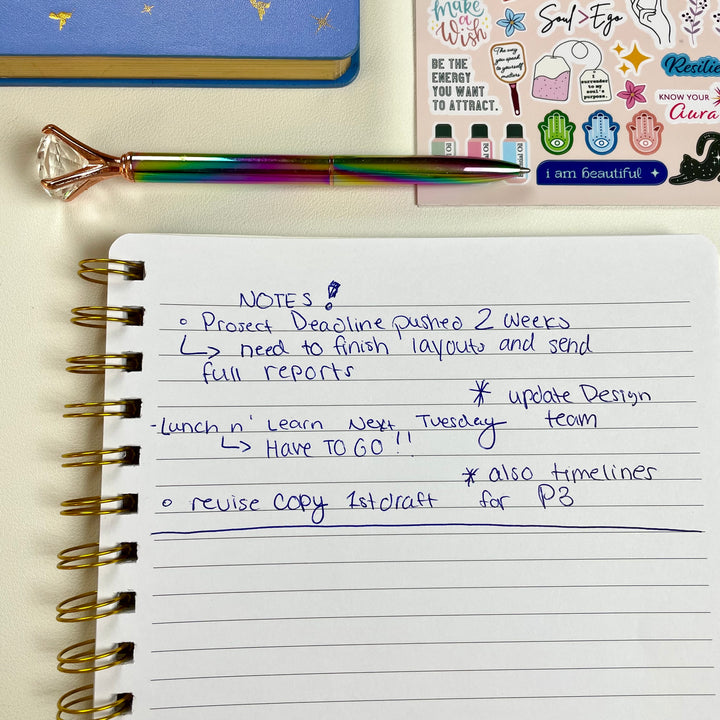 make
a
Wish
Soul > Ego
The way
you speak
to yourself
matters
BE THE
ENERGY
YOU WANT
TO ATTRACT.
I
surrender
to my
soul's
purpose.
Resilie
KNOW YOUR
Aura
i am beautiful
NOTES!
◦ Project Deadline pushed 2 weeks
↳ need to finish layouts and send
full reports
* update Design
team
-Lunch n' Learn Next Tuesday
↳ HAVE TO GO!!
* also timelines
for P3
◦ revise copy 1st draft